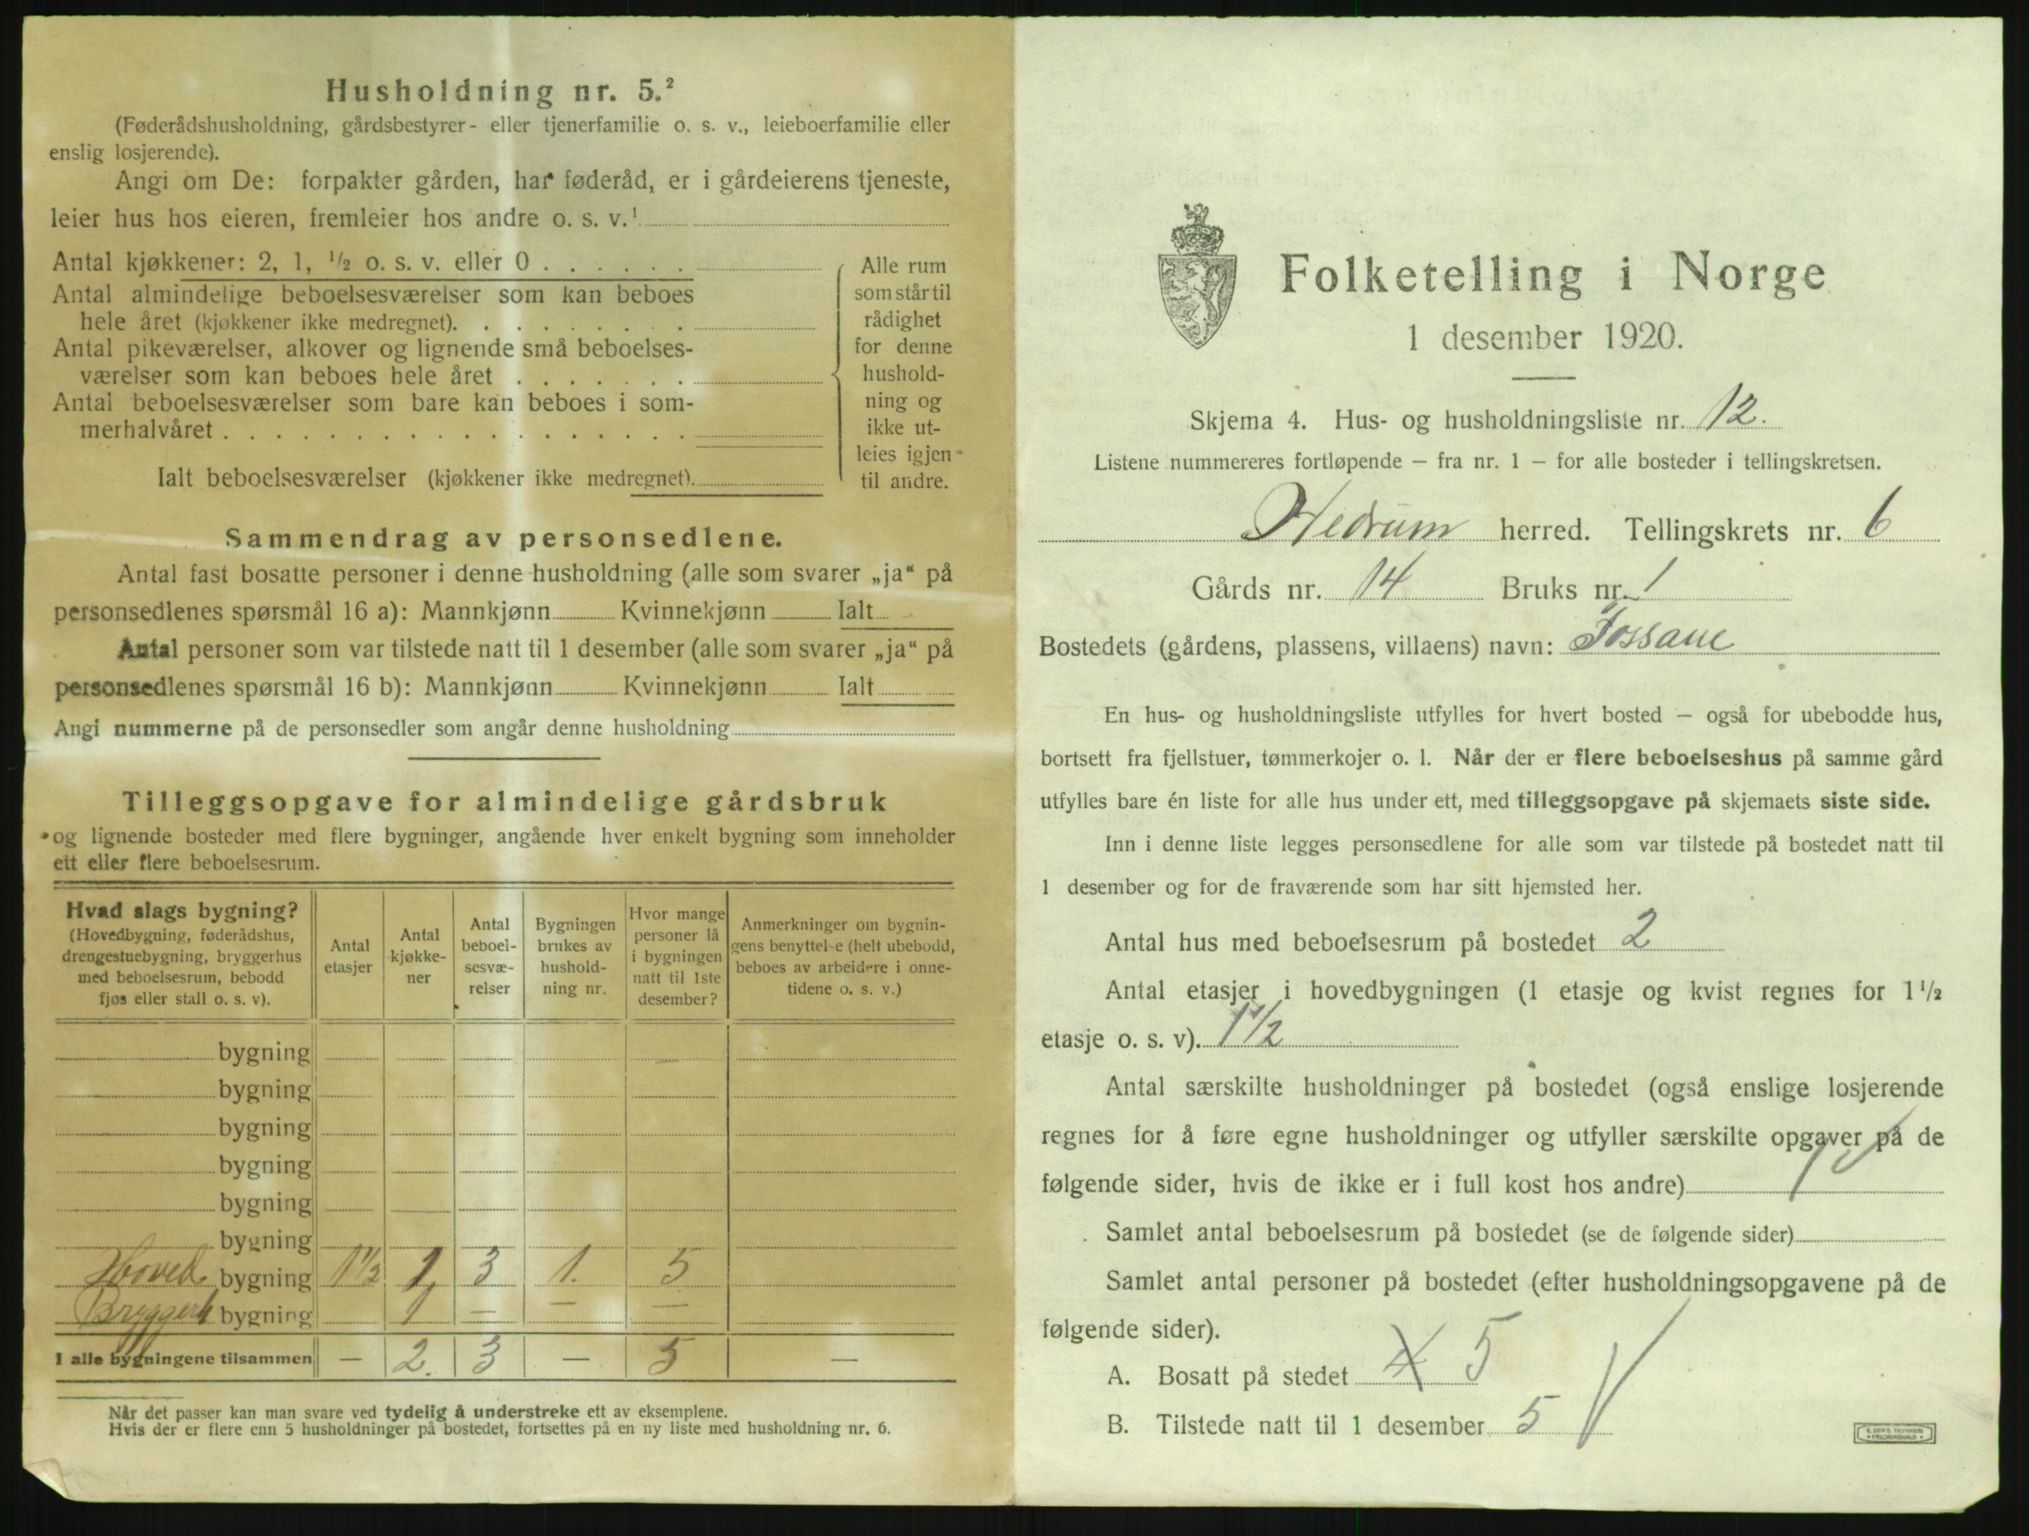 Husholdning nr. 5.²
(Føderådshusholdning, gårdsbestyrer- eller tjenerfamilie o. s. v., leieboerfamilie eller
enslig losjerende).
Angi om De: forpakter gården, har føderåd, er i gårdeierens tjeneste,
leier hus hos eieren, fremleier hos andre o. s. v.¹
Antal kjøkkener: 2, 1, ½ o. s. v. eller 0 . . . . . .
Antal almindelige beboelsesværelser som kan beboes
hele året (kjøkkener ikke medregnet). . . . . . . . .
Antal pikeværelser, alkover og lignende små beboelses-
værelser som kan beboes hele året . . . . . . .
Antal beboelsesværelser som bare kan beboes i som-
merhalvåret . . . . . . . . . . . . . . . . . .
Ialt beboelsesværelser (kjøkkener ikke medregnet).
Alle rum
som står til
rådighet
for denne
hushold-
ning og
ikke ut-
leies igjen
til andre.
Sammendrag av personsedlene.
Antal fast bosatte personer i denne husholdning (alle som svarer „ja“ på
personsedlenes spørsmål 16 a): Mannkjønn Kvinnekjønn Ialt
Antal personer som var tilstede natt til 1 desember (alle som svarer „ja“ på
personsedlenes spørsmål 16 b): Mannkjønn Kvinnekjønn Ialt
Angi nummerne på de personsedler som angår denne husholdning
Tilleggsopgave for almindelige gårdsbruk
og lignende bosteder med flere bygninger, angående hver enkelt bygning som inneholder
ett eller flere beboelsesrum.
Hvad slags bygning?
(Hovedbygning, føderådshus,
drengestuebygning, bryggerhus
med beboelsesrum, bebodd
fjøs eller stall o. s. v).
Antal
etasjer
Antal
kjøkke-
ner
Antal
beboel-
sesvæ-
relser
Bygningen
brukes av
hushold-
ning nr.
Hvor mange
personer lå
i bygningen
natt til 1ste
desember?
Anmerkninger om bygnin-
gens benyttelse (helt ubebodd,
beboes av arbeidere i onne-
tidene o. s. v.)
bygning
bygning
bygning
bygning
bygning
bygning
Hoved bygning 1½ 1 3 1. 5
Bryggerh bygning 1 — — —
I alle bygningene tilsammen — 2. 3 — 5 —
Når det passer kan man svare ved tydelig å understreke ett av eksemplene.
Hvis der er flere enn 5 husholdninger på bostedet, fortsettes på en ny liste med husholdning nr. 6.
Folketelling i Norge
1 desember 1920.
Skjema 4. Hus- og husholdningsliste nr. 12.
Listene nummereres fortløpende — fra nr. 1 — for alle bosteder i tellingskretsen.
Hedrum herred. Tellingskrets nr. 6
Gårds nr. 14 Bruks nr. 1
Bostedets (gårdens, plassens, villaens) navn: Fossane
En hus- og husholdningsliste utfylles for hvert bosted — også for ubebodde hus,
bortsett fra fjellstuer, tømmerkojer o. l. Når der er flere beboelseshus på samme gård
utfylles bare én liste for alle hus under ett, med tilleggsopgave på skjemaets siste side.
Inn i denne liste legges personsedlene for alle som var tilstede på bostedet natt til
1 desember og for de fraværende som har sitt hjemsted her.
Antal hus med beboelsesrum på bostedet 2
Antal etasjer i hovedbygningen (1 etasje og kvist regnes for 1½
etasje o. s. v). 1½
Antal særskilte husholdninger på bostedet (også enslige losjerende
regnes for å føre egne husholdninger og utfyller særskilte opgaver på de
følgende sider, hvis de ikke er i full kost hos andre) 1
Samlet antal beboelsesrum på bostedet (se de følgende sider)
Samlet antal personer på bostedet (efter husholdningsopgavene på de
følgende sider).
A. Bosatt på stedet 4 5
B. Tilstede natt til 1 desember 5